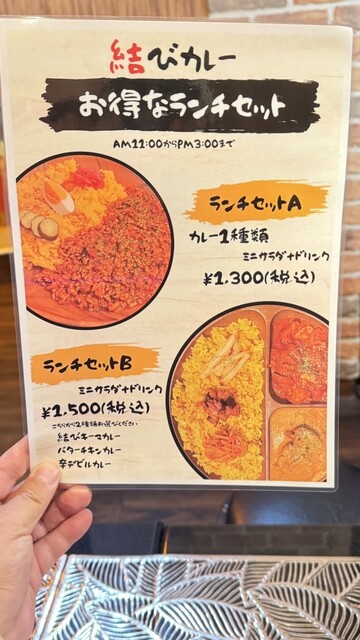 結びカレー
お得なランチセット
AM11:00からPM3:00まで
ランチセットA
カレー1種類
ミニサラダ+ドリンク
¥1,300(税込)
ランチセットB
ミニサラダ+ドリンク
¥1,500(税込)
こちらから2種類お選びください
結びキーマカレー
バターチキンカレー
辛デビルカレー